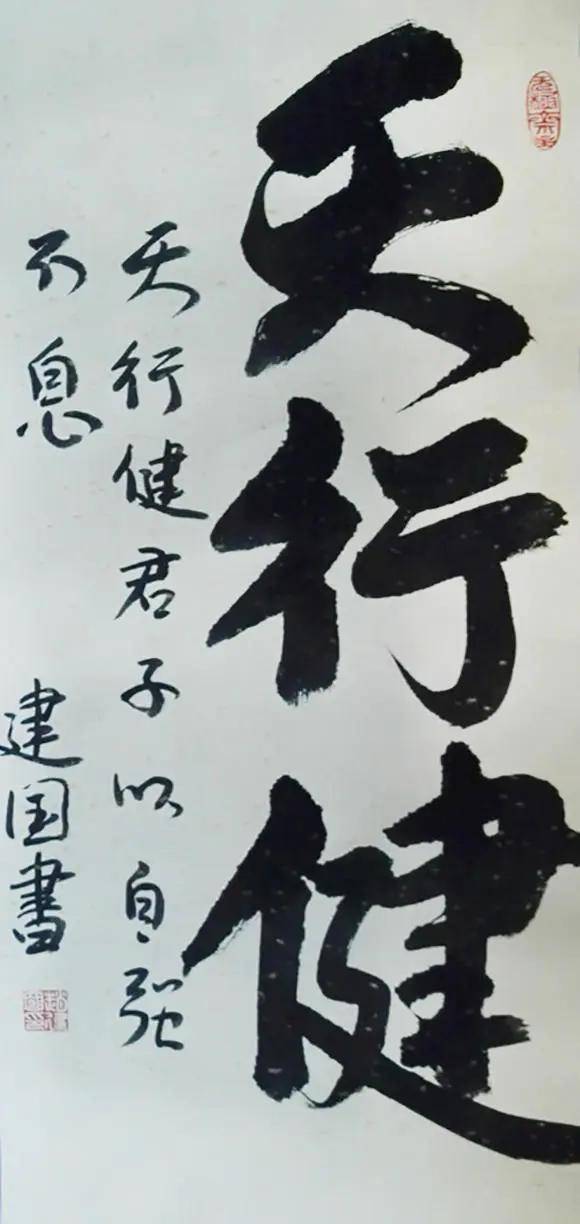 天行健
天行健君子以自强
不息
建国书